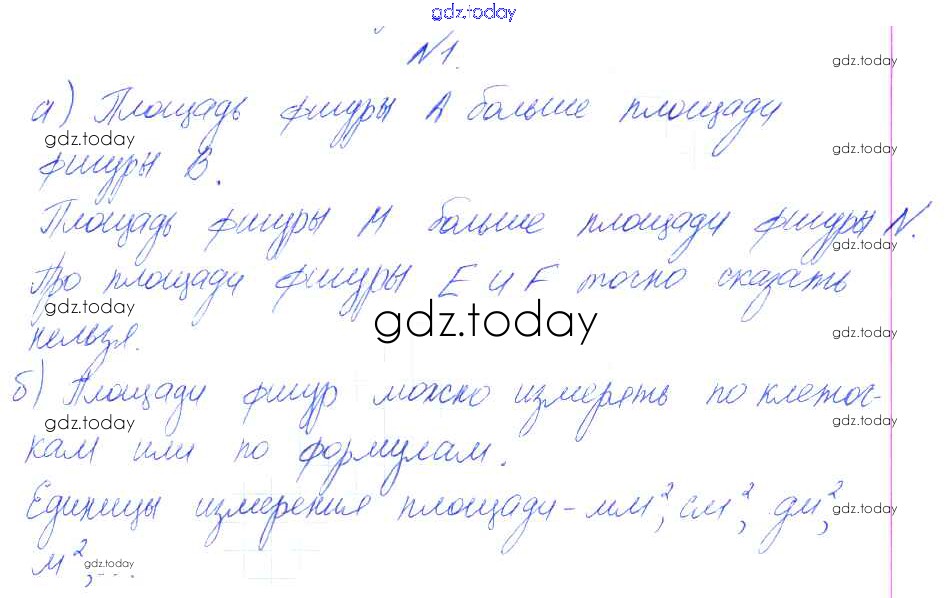 gdz.today
№1.
gdz.today
а) Площадь фигуры А больше площади
gdz.today
gdz.today
фигуры В.
Площадь фигуры М больше площади фигуры N.
gdz.today
Про площади фигуры Е и F точно сказать
gdz.today
gdz.today
gdz.today
нельзя.
б) Площади фигур можно измерять по клеточ-
gdz.today
gdz.today
кам или по формулам.
Единицы измерения площади - мм², см², дм²,
gdz.today
м², ...
gdz.today